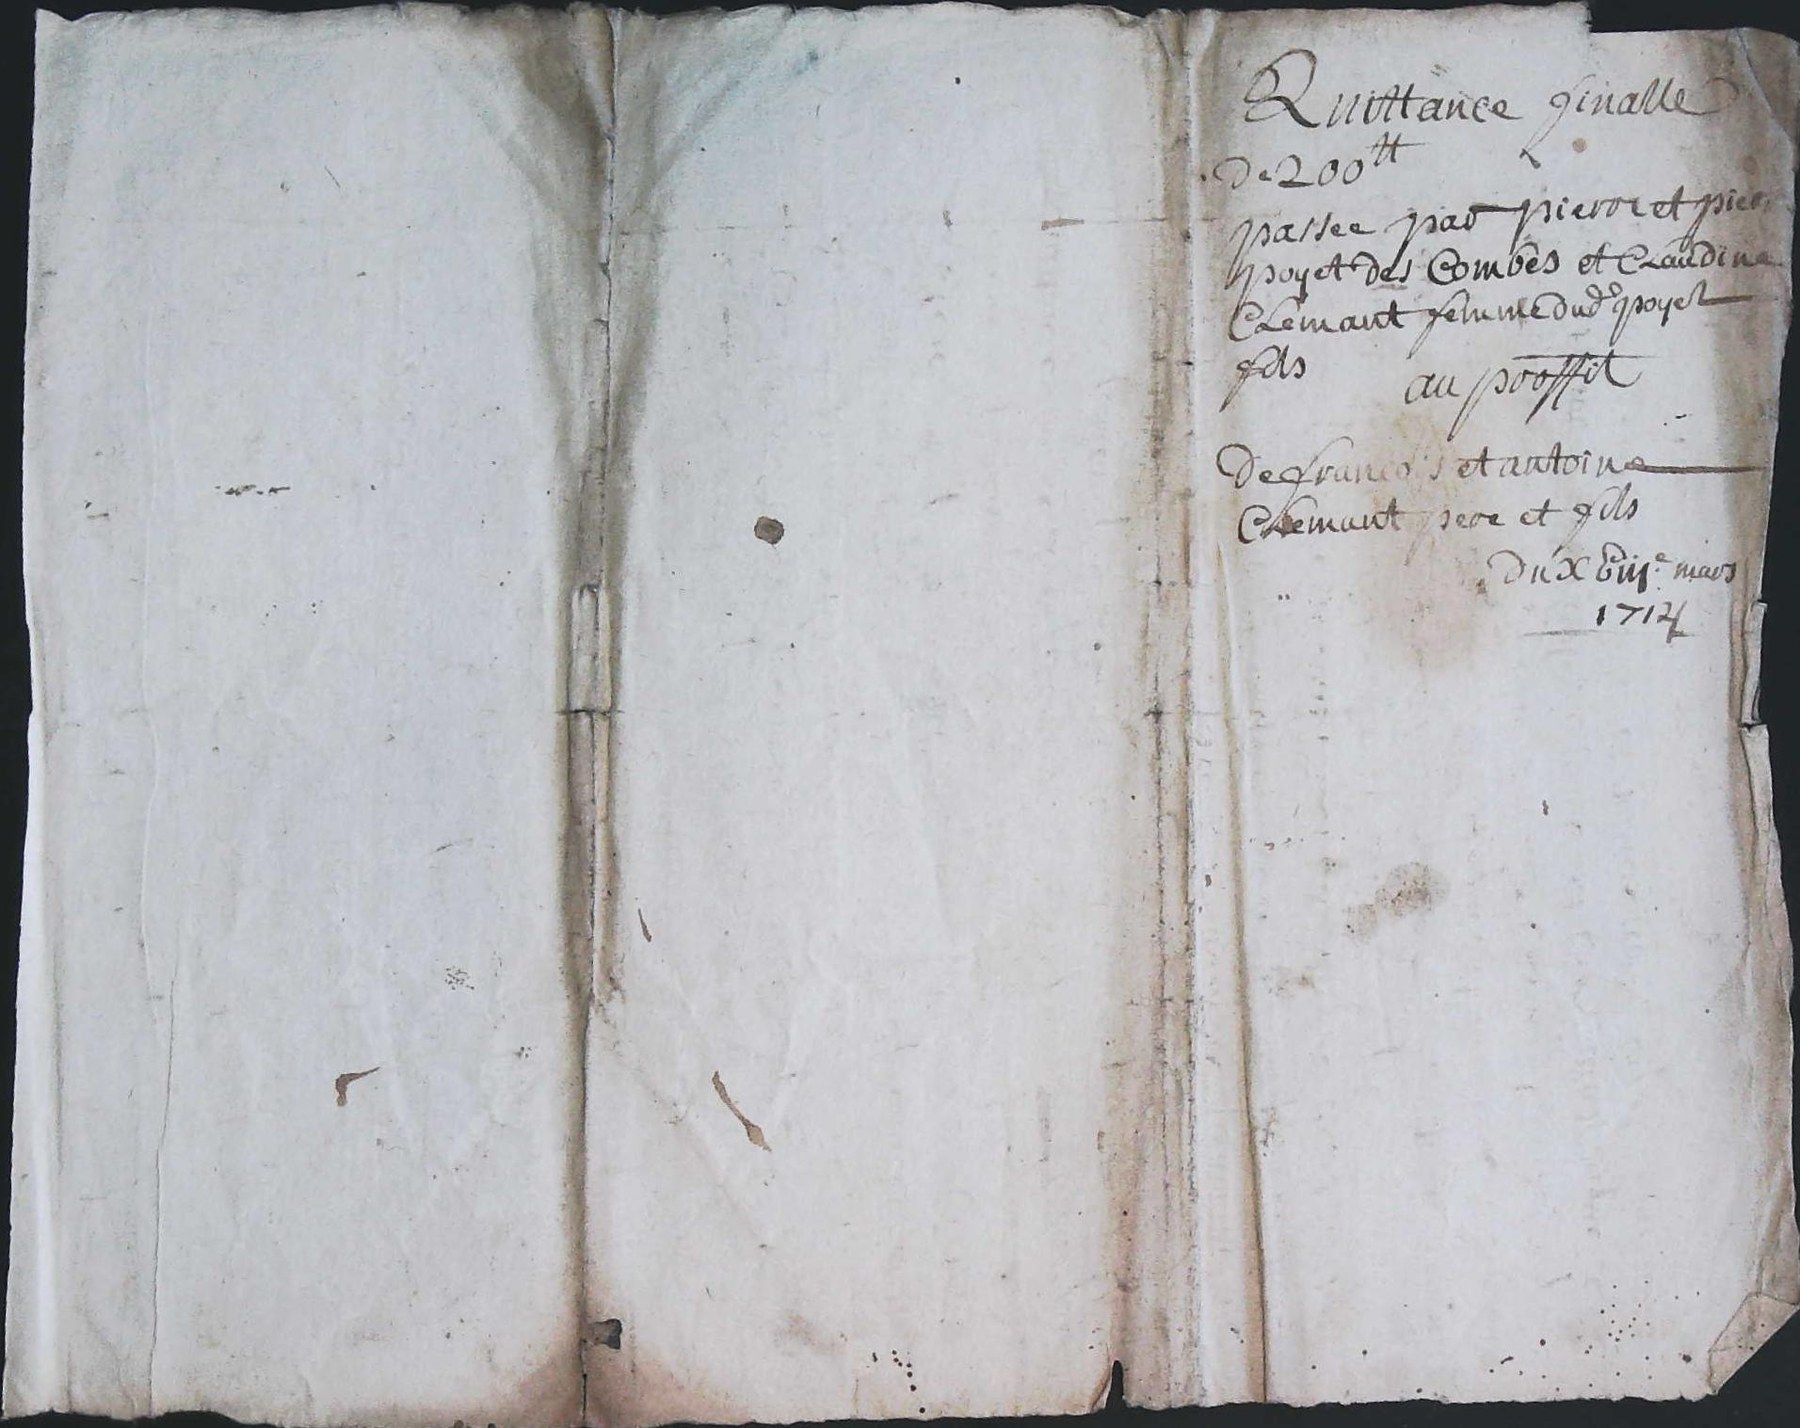 Quittance finalle
de 200 tt
passee par pierre et pierre
poyet des Combes et Claudine
Clemant femme dud. poyet
fils
au proffit
de francois et antoine
Clemant pere et fils
du mars
1714